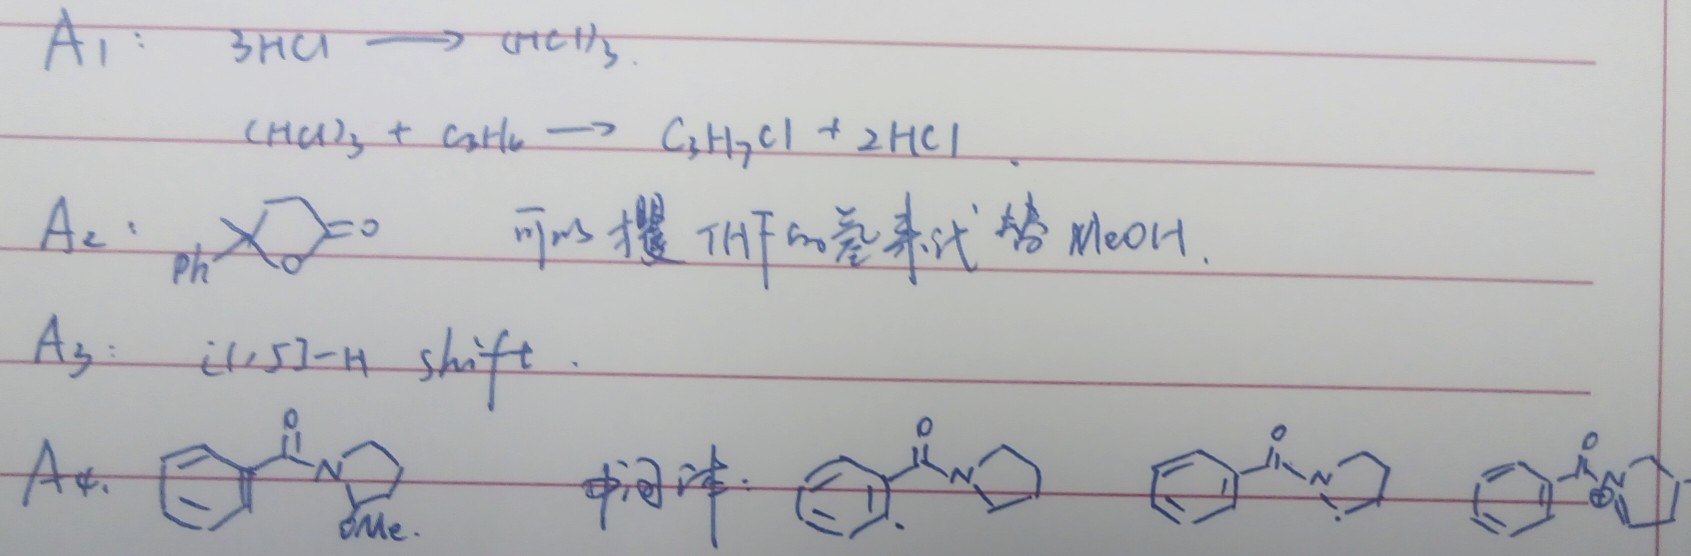 A1: 3HCl ⟶ (HCl)3.
(HCl)3 + C3H6 ⟶ C3H7Cl + 2HCl.
A2: Ph O =O 可以攫THF的氢来代替MeOH.
A3: [1,5]-H shift.
A4. O N OMe. 中间体: O N O N O N ⊕